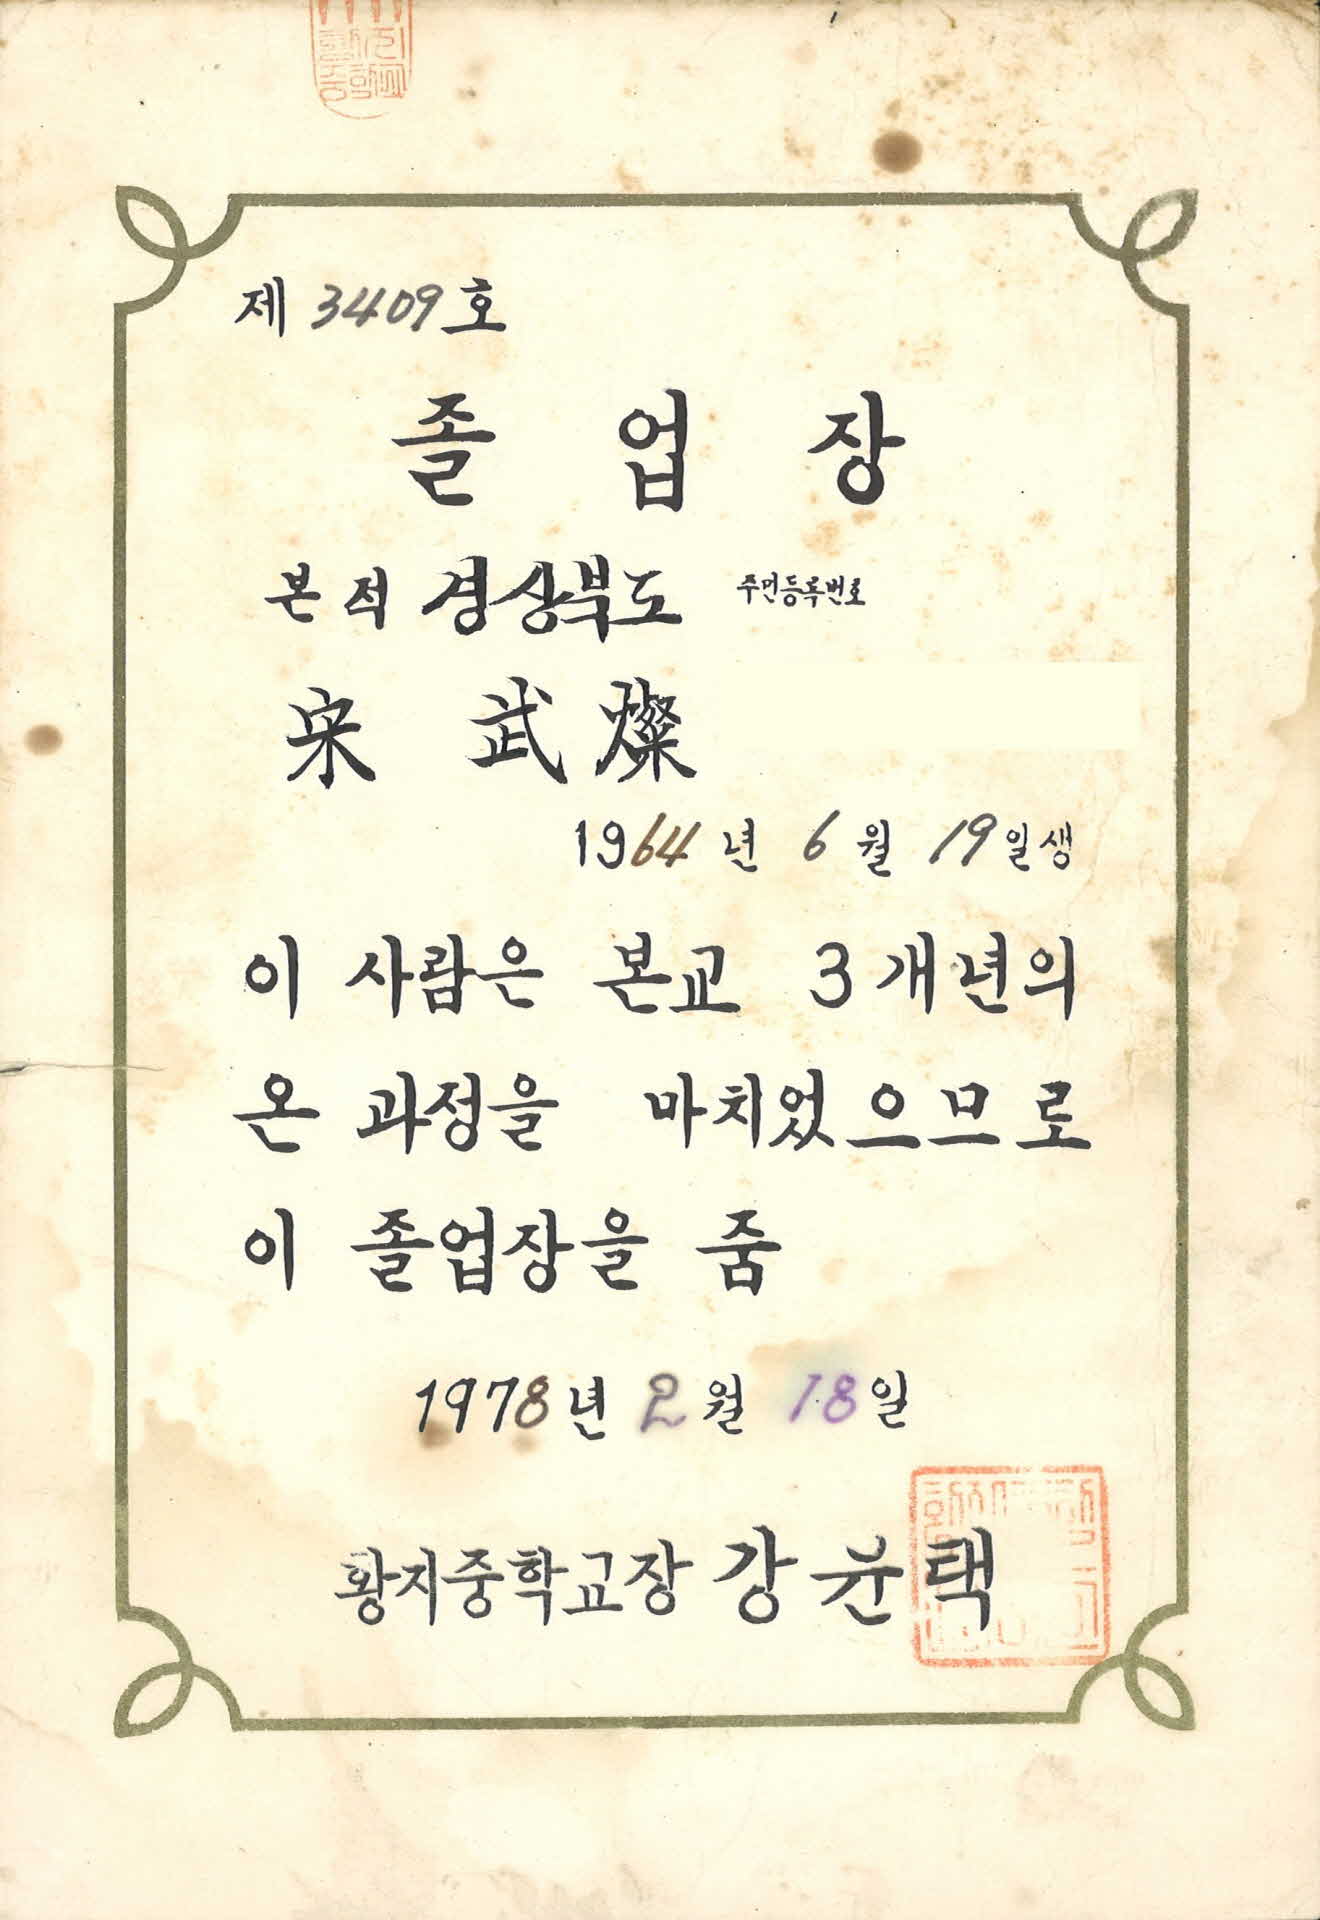 제 3409 호
졸 업 장
본적 경상북도 주민등록번호
宋 武 燦
1964년 6월 19일생
이 사람은 본교 3개년의
온 과정을 마치었으므로
이 졸업장을 줌
1978년 2월 18일
황지중학교장 강윤택